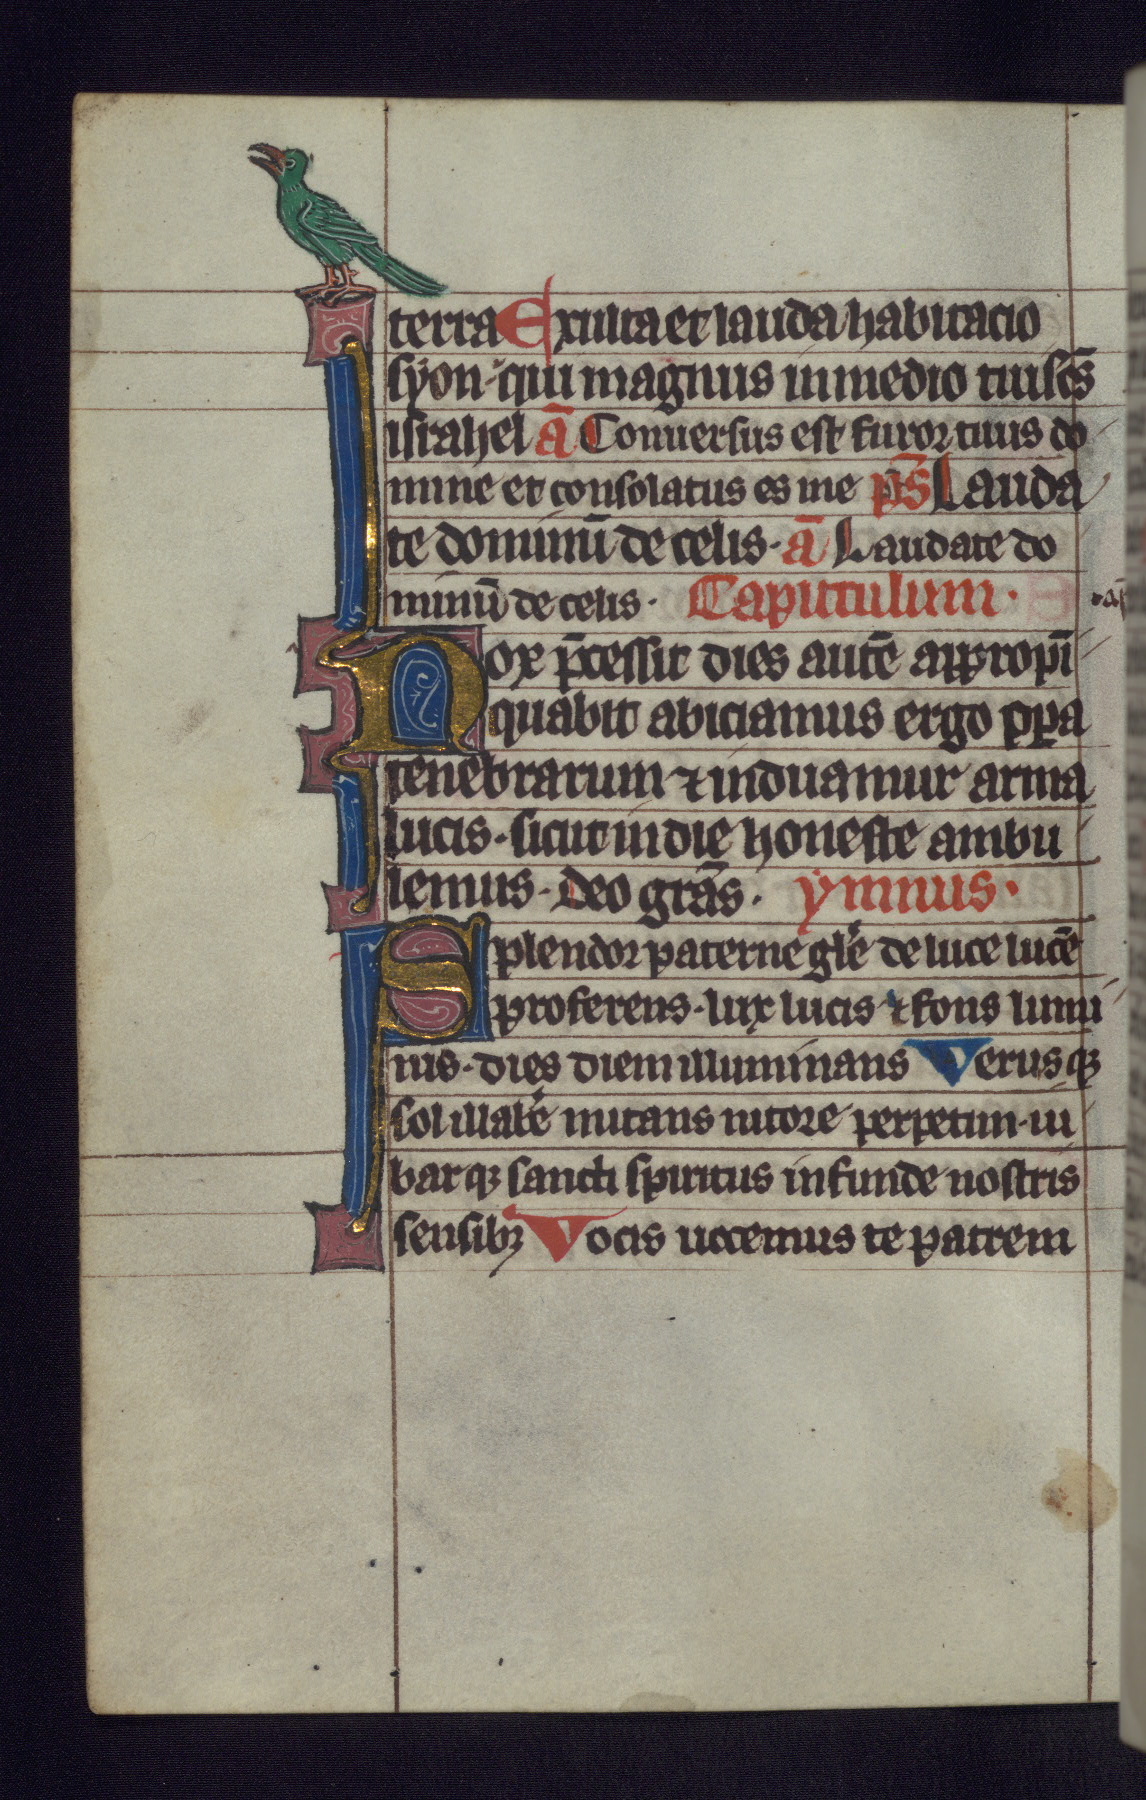 terra Exulta et lauda habitacio
syon· qui magnus in medio tui scs̄
israhel ā Conuersus est furor tuus do
mine et consolatus es me ps̄ Lauda
te dominū de celis· ā Laudate do
minū de celis· Capitulum·
Nox p̄cessit dies autē appropī
quabit abiciamus ergo opa
tenebrarum ⁊ induamur arma
lucis· sicut in die honeste ambu
lemus· deo grās· ymnus·
Splendor paterne glē de luce lucē
proferens· lux lucis ⁊ fons lumi
nis· dies diem illuminans Verusqꝫ
sol illabē mitans nitore perpetim· iu
barqꝫ sancti spiritus infunde nostris
sensibꝫ Vocis uocemus te patrem